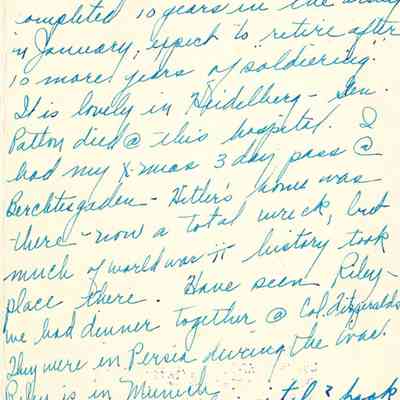 completed 10 years in the army
in January, expect to retire after
10 more years of "soldiering."
It is lovely in Heidelberg - Gen.
Patton died @ this hospital. I
had my X-mas 3 day pass @
Berchtesgaden - Hitler's home was
there - now a total wreck, but
much of world war II history took
place there. Have seen Riley -
we had dinner together @ Col. Fitzgeralds
They were in Persia during the Evac.
Riley is in Munich
until 2